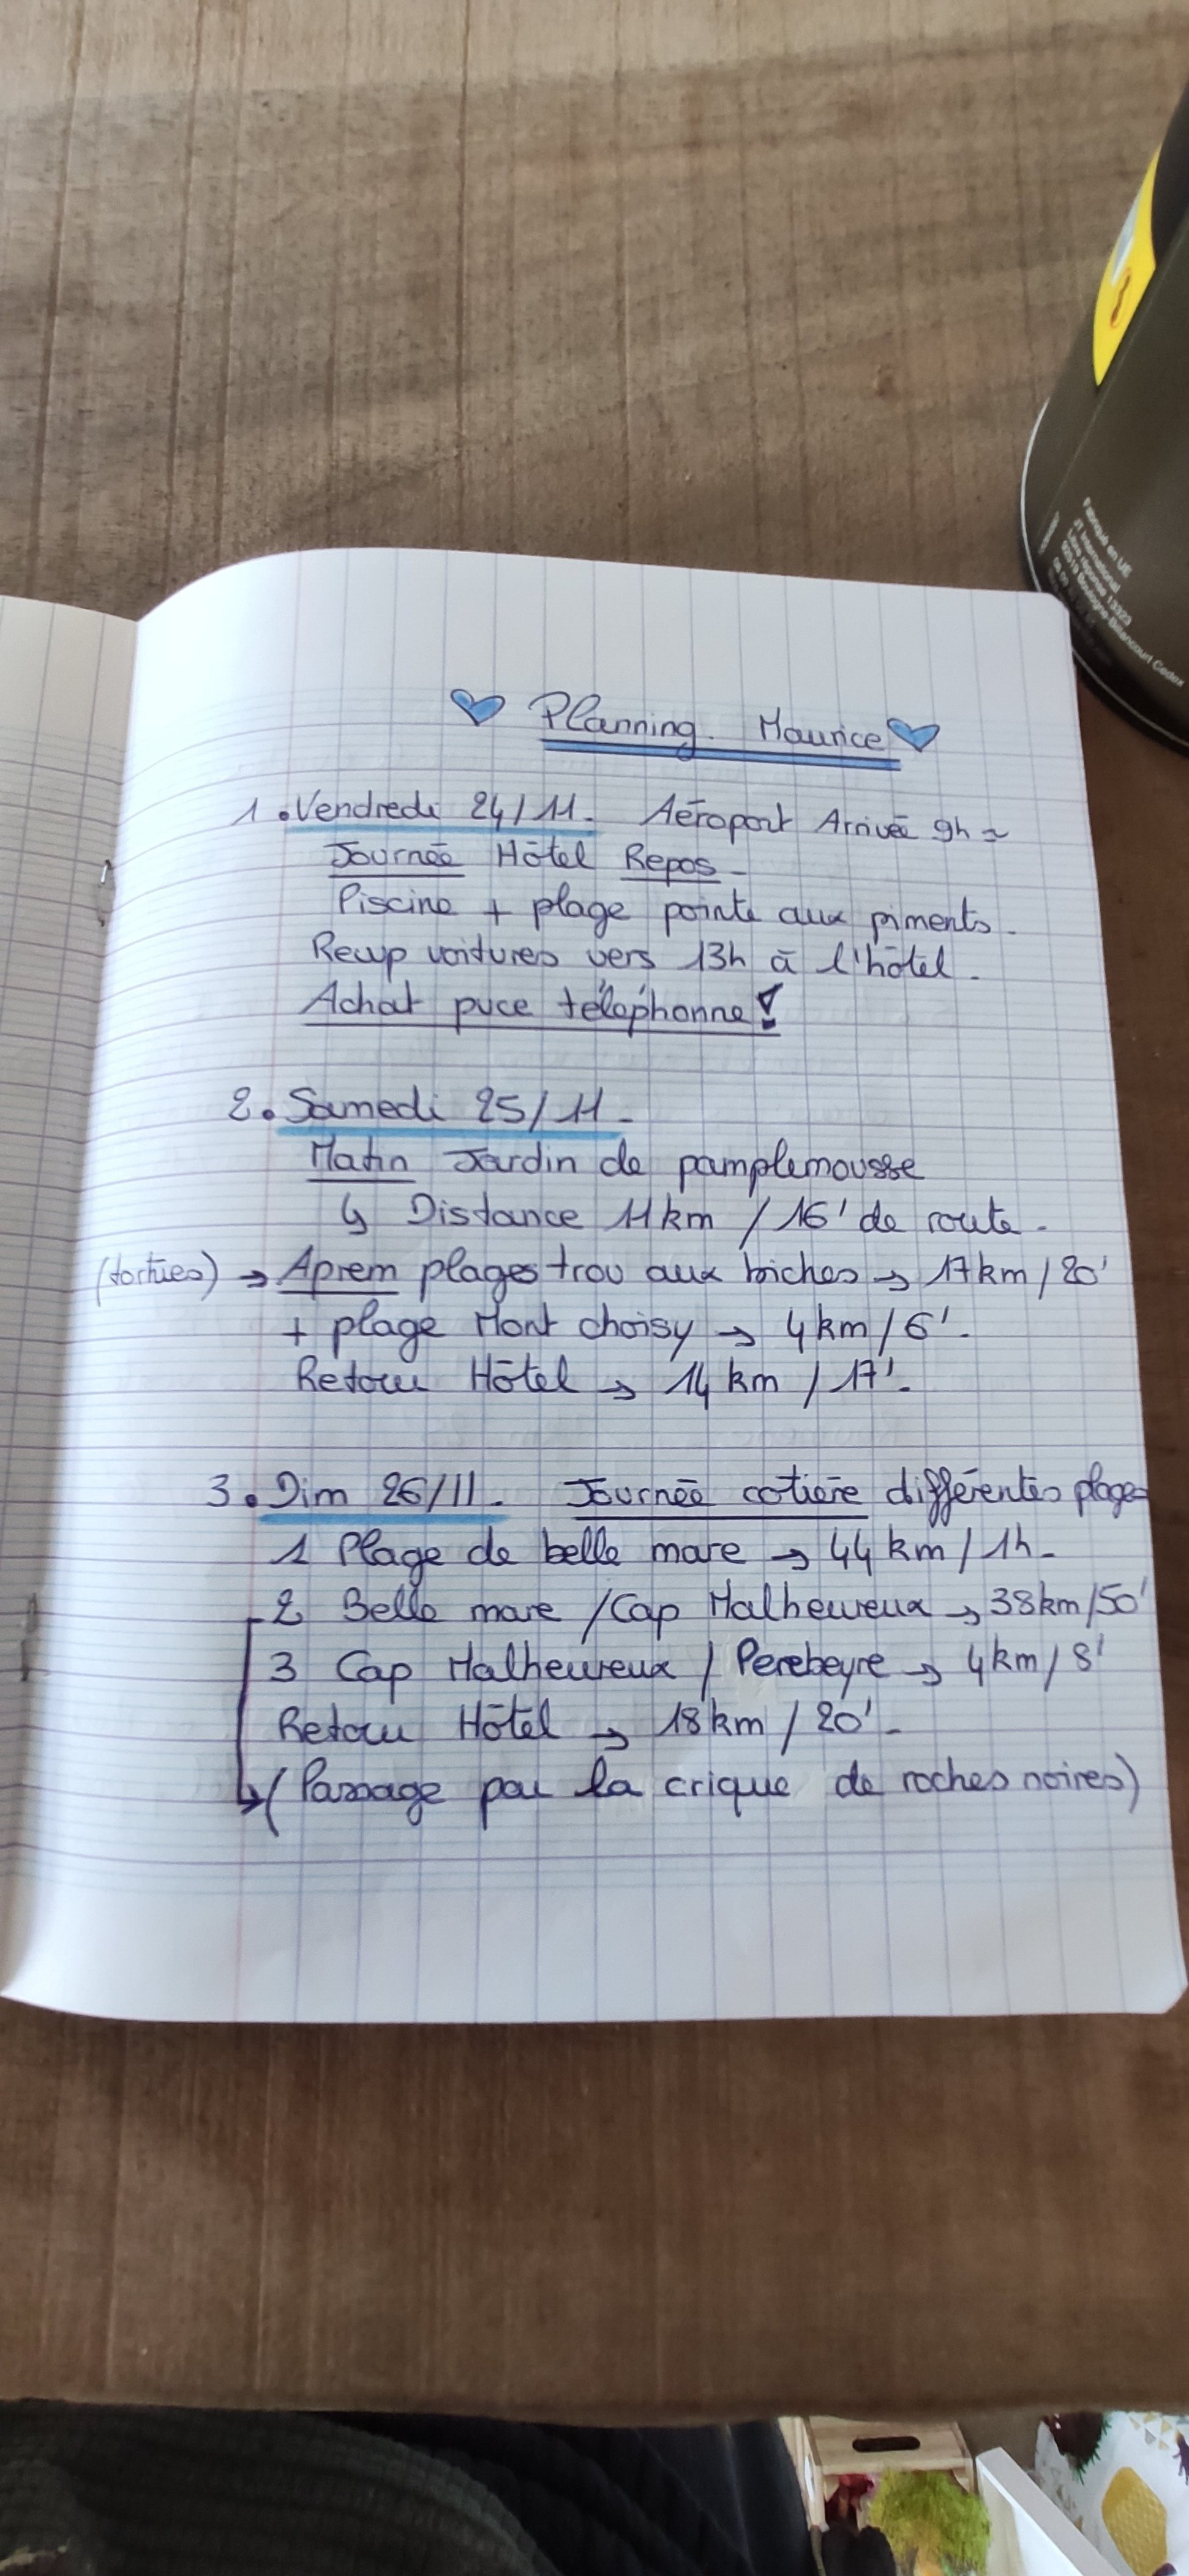 Planning. Maurice
1. Vendredi 24/11. Aéroport Arrivée 9h ~
Journée Hôtel Repos -
Piscine + plage pointe aux piments.
Recup voitures vers 13h à l'hôtel.
Achat puce téléphonne !
2. Samedi 25/11 -
Matin Jardin de pamplemousse
↳ Distance 11km / 16' de route -
(tortues) → Aprem plages trou aux biches → 17km / 20'
+ plage Mont choisy → 4km / 6' -
Retour Hôtel → 14 km / 17' -
3. Dim 26/11 - Journée cotière différentes plages
1 Plage de belle mare → 44 km / 1h -
2 Belle mare / Cap Malheureux → 38km/50'
3 Cap Malheureux / Perebeyre → 4km / 8'
Retour Hôtel → 18 km / 20' -
↳ (Passage par la crique de roches noires)
Fabriqué en UE
JT International
Libre réponse 13323
92919 Boulogne-Billancourt Cedex